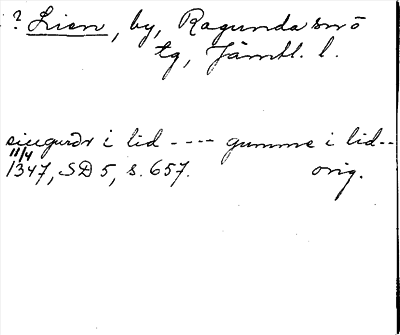 ? Lien, by, Ragunda snö
tg, Jämtl. l.
siugurdr i lid ---- gumme i lid--
11/4
1347, SD 5, s. 657. orig.